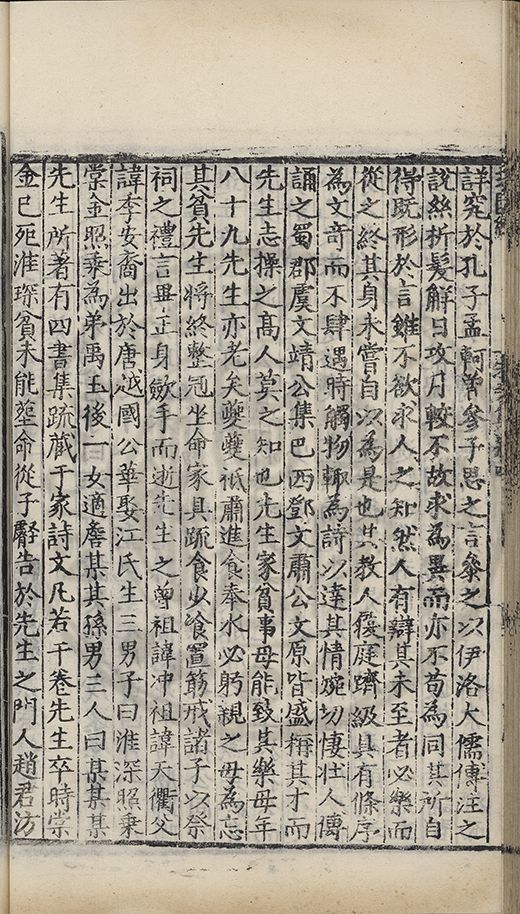 詳究於孔子孟軻曽參子思之言參之以伊洛大儒傳注之
說絲析髮觧日攻月較不故求為異而亦不苟為同其所自
得既形於言雖不欲求人之知然人有辯其未至者必樂而
從之終其身未嘗自以為是也其教人優庭躋級具有條序
為文竒而不肆遇時觸物輙為詩以達其情婉切悽壮人傳
誦之蜀郡虞文靖公集巴西鄧文肅公文原皆盛稱其才而
先生志操之髙人莫之知也先生家貧事母能致其樂母年
八十九先生亦老矣夔夔祗肅進食奉水必躬親之母為忘
其貧先生将終整冠坐命家具疏食少飡置筯戒諸子以祭
祠之禮言畢正身歛手而逝先生之曽祖諱冲祖諱天衢父
諱李安裔出於唐越國公華娶江氏生三男子曰淮深照乗
棠金照乗為弟禹玉後一女適詹某其孫男三人曰某某某
先生所著有四書集疏蔵于家詩文凡若干卷先生卒時棠
金已死淮琛貧未能塟命從子叡告於先生之門人趙君汸